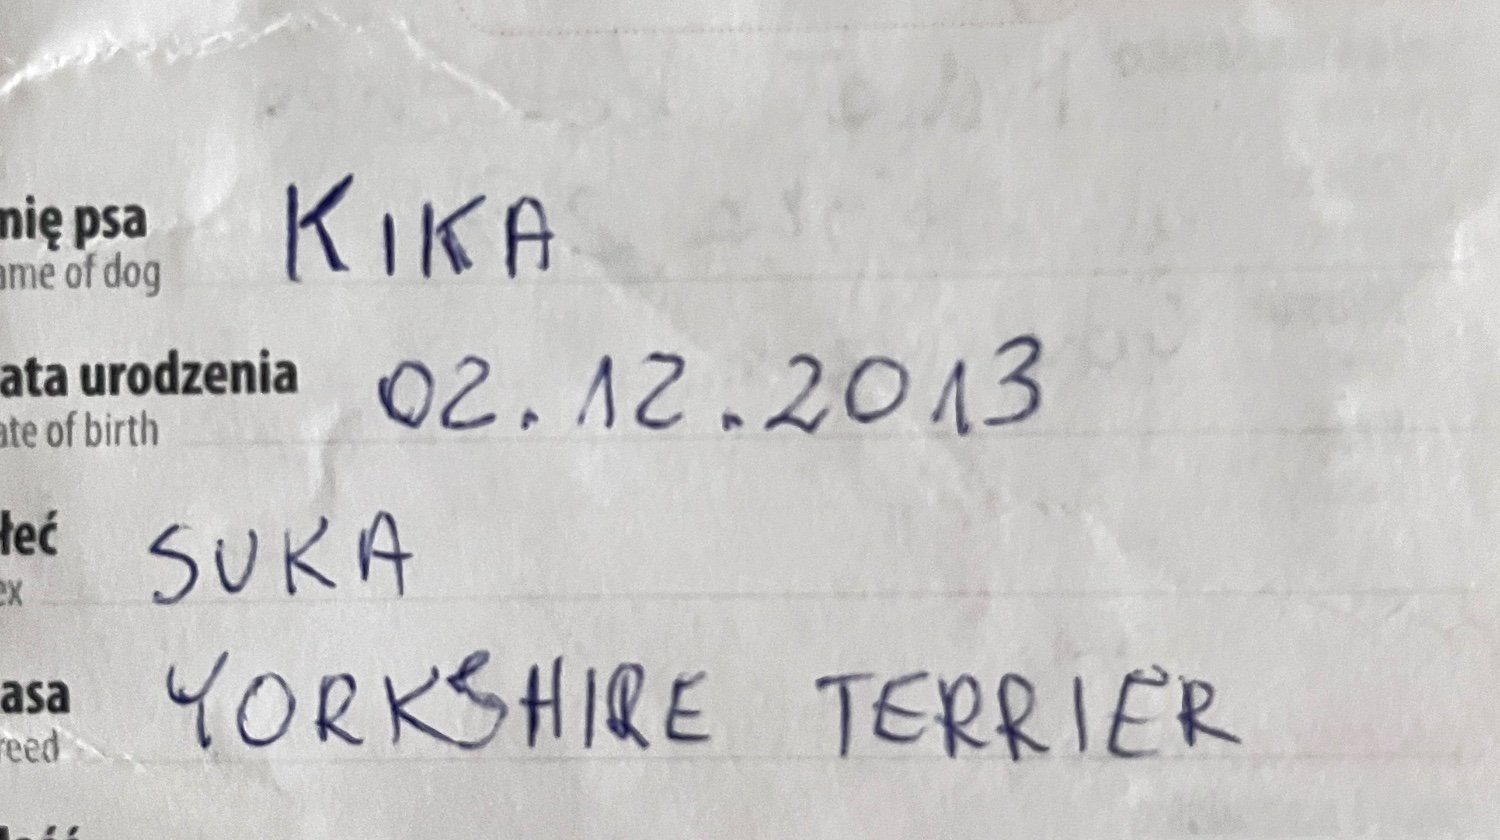 nię psa KIKA
ame of dog
ata urodzenia 02.12.2013
ate of birth
łeć SUKA
ex
asa YORKSHIRE TERRIER
reed